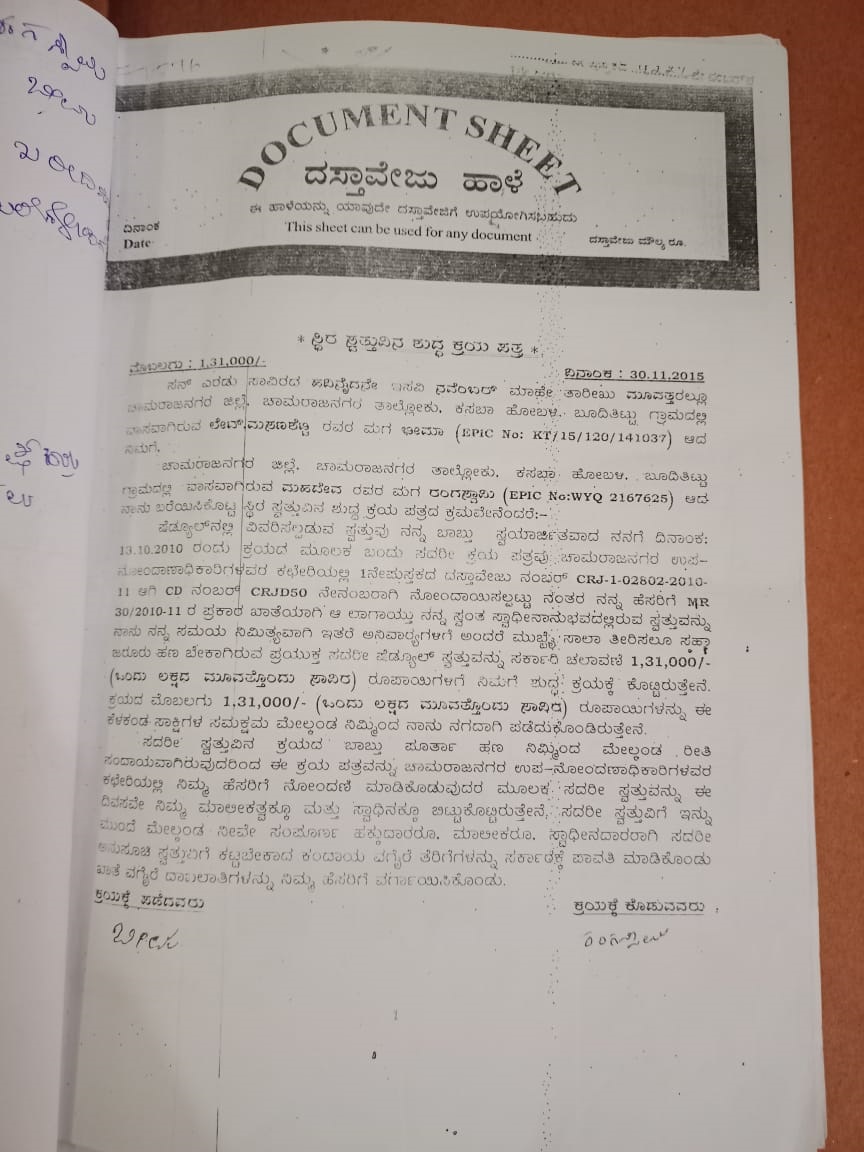 DOCUMENT SHEET
ದಸ್ತಾವೇಜು ಹಾಳೆ
ಈ ಹಾಳೆಯನ್ನು ಯಾವುದೇ ದಸ್ತಾವೇಜಿಗೆ ಉಪಯೋಗಿಸಬಹುದು
ದಿನಾಂಕ
Date
This sheet can be used for any document
ದಸ್ತಾವೇಜು ಮೌಲ್ಯ ರೂ.
* ಸ್ಥಿರ ಸ್ವತ್ತುವಿನ ಶುದ್ಧ ಕ್ರಯ ಪತ್ರ *
ಮೊಬಲಗು : 1,31,000/-
ದಿನಾಂಕ : 30.11.2015
ಸನ್ ಎರಡು ಸಾವಿರದ ಹದಿನೈದನೇ ಇಸವಿ ನವೆಂಬರ್ ಮಾಹೇ ತಾರೀಖು ಮೂವತ್ತರಲ್ಲೂ
ಚಾಮರಾಜನಗರ ಜಿಲ್ಲೆ, ಚಾಮರಾಜನಗರ ತಾಲ್ಲೋಕು, ಕಸಬಾ ಹೋಬಳಿ, ಬೂದಿತಿಟ್ಟು ಗ್ರಾಮದಲ್ಲಿ
ವಾಸವಾಗಿರುವ ಲೇಟ್ ರವರ ಮಗ ಭೀಮಾ (EPiC No: KT/15/120/141037) ಆದ
ನಿಮಗೆ,
ಚಾಮರಾಜನಗರ ಜಿಲ್ಲೆ, ಚಾಮರಾಜನಗರ ತಾಲ್ಲೋಕು, ಕಸಬಾ ಹೋಬಳಿ, ಬೂದಿತಿಟ್ಟು
ಗ್ರಾಮದಲ್ಲಿ ವಾಸವಾಗಿರುವ ಮಹದೇವ ರವರ ಮಗ ರಂಗಸ್ವಾಮಿ (EPIC No:WYQ 2167625) ಆದ
ನಾನು ಬರೆಯಿಸಿಕೊಟ್ಟ ಸ್ಥಿರ ಸ್ವತ್ತುವಿನ ಶುದ್ಧ ಕ್ರಯ ಪತ್ರದ ಕ್ರಮವೇನೆಂದರೆ:-
ಷೆಡ್ಯೂಲ್‌ನಲ್ಲಿ ವಿವರಿಸಲ್ಪಡುವ ಸ್ವತ್ತುವು ನನ್ನ ಬಾಬ್ತು ಸ್ವಯಾರ್ಜಿತವಾದ ನನಗೆ ದಿನಾಂಕ:
13.10.2010 ರಂದು ಕ್ರಯದ ಮೂಲಕ ಬಂದು ಸದರೀ ಕ್ರಯ ಪತ್ರವು ಚಾಮರಾಜನಗರ ಉಪ-
ನೋಂದಾಣಾಧಿಕಾರಿಗಳವರ ಕಛೇರಿಯಲ್ಲಿ 1ನೇಪುಸ್ತಕದ ದಸ್ತಾವೇಜು ನಂಬರ್ CRJ-1-02802-2010-
11 ಆಗಿ CD ನಂಬರ್ CRJD50 ನೇನಂಬರಾಗಿ ನೋಂದಾಯಿಸಲ್ಪಟ್ಟು ನಂತರ ನನ್ನ ಹೆಸರಿಗೆ MR
30/2010-11 ರ ಪ್ರಕಾರ ಖಾತೆಯಾಗಿ ಆ ಲಾಗಾಯ್ತು ನನ್ನ ಸ್ವಂತ ಸ್ವಾಧೀನಾನುಭವದಲ್ಲಿರುವ ಸ್ವತ್ತುವನ್ನು
ನಾನು ನನ್ನ ಸಮಯ ನಿಮಿತ್ಯವಾಗಿ ಇತರೆ ಅನಿವಾರ್ಯಗಳಿಗೆ ಅಂದರೆ ಸಾಲಾ ತೀರಿಸಲೂ
ಜರೂರು ಹಣ ಬೇಕಾಗಿರುವ ಪ್ರಯುಕ್ತ ಸದರೀ ಷೆಡ್ಯೂಲ್ ಸ್ವತ್ತುವನ್ನು ಸರ್ಕಾರಿ ಚಲಾವಣಿ 1,31,000/-
(ಒಂದು ಲಕ್ಷದ ಮೂವತ್ತೊಂದು ಸಾವಿರ) ರೂಪಾಯಿಗಳಿಗೆ ನಿಮಗೆ ಶುದ್ಧ ಕ್ರಯಕ್ಕೆ ಕೊಟ್ಟಿರುತ್ತೇನೆ.
ಕ್ರಯದ ಮೊಬಲಗು 1,31,000/- (ಒಂದು ಲಕ್ಷದ ಮೂವತ್ತೊಂದು ಸಾವಿರ) ರೂಪಾಯಿಗಳನ್ನು ಈ
ಕೆಳಕಂಡ ಸಾಕ್ಷಿಗಳ ಸಮಕ್ಷಮ ಮೇಲ್ಕಂಡ ನಿಮ್ಮಿಂದ ನಾನು ನಗದಾಗಿ ಪಡೆದುಕೊಂಡಿರುತ್ತೇನೆ.
ಸದರೀ ಸ್ವತ್ತುವಿನ ಕ್ರಯದ ಬಾಬ್ತು ಪೂರ್ತಾ ಹಣ ನಿಮ್ಮಿಂದ ಮೇಲ್ಕಂಡ ರೀತಿ
ಸಂದಾಯವಾಗಿರುವುದರಿಂದ ಈ ಕ್ರಯ ಪತ್ರವನ್ನು ಚಾಮರಾಜನಗರ ಉಪ-ನೋಂದಣಾಧಿಕಾರಿಗಳವರ
ಕಛೇರಿಯಲ್ಲಿ ನಿಮ್ಮ ಹೆಸರಿಗೆ ನೋಂದಣಿ ಮಾಡಿಕೊಡುವುದರ ಮೂಲಕ ಸದರೀ ಸ್ವತ್ತುವನ್ನು ಈ
ದಿವಸವೇ ನಿಮ್ಮ ಮಾಲೀಕತ್ವಕ್ಕೂ ಮತ್ತು ಸ್ವಾಧಿನಕ್ಕೂ ಬಿಟ್ಟುಕೊಟ್ಟಿರುತ್ತೇನೆ, ಸದರೀ ಸ್ವತ್ತುವಿಗೆ ಇನ್ನು
ಮುಂದೆ ಮೇಲ್ಕಂಡ ನೀವೇ ಸಂಪೂರ್ಣ ಹಕ್ಕುದಾರರೂ, ಮಾಲೀಕರೂ, ಸ್ವಾಧೀನದಾರರಾಗಿ ಸದರೀ
ಅನುಸೂಚಿ ಸ್ವತ್ತುವಿಗೆ ಕಟ್ಟಬೇಕಾದ ಕಂದಾಯ ವಗೈರೆ ತೆರಿಗೆಗಳನ್ನು ಸರ್ಕಾರಕ್ಕೆ ಪಾವತಿ ಮಾಡಿಕೊಂಡು
ಖಾತೆ ವಗೈರೆ ದಾಖಲಾತಿಗಳನ್ನು ನಿಮ್ಮ ಹೆಸರಿಗೆ ವರ್ಗಾಯಿಸಿಕೊಂಡು.
ಕ್ರಯಕ್ಕೆ ಪಡೆದವರು
ಕ್ರಯಕ್ಕೆ ಕೊಡುವವರು
ಭೀಮ
ರಂಗಸ್ವಾಮಿ
1